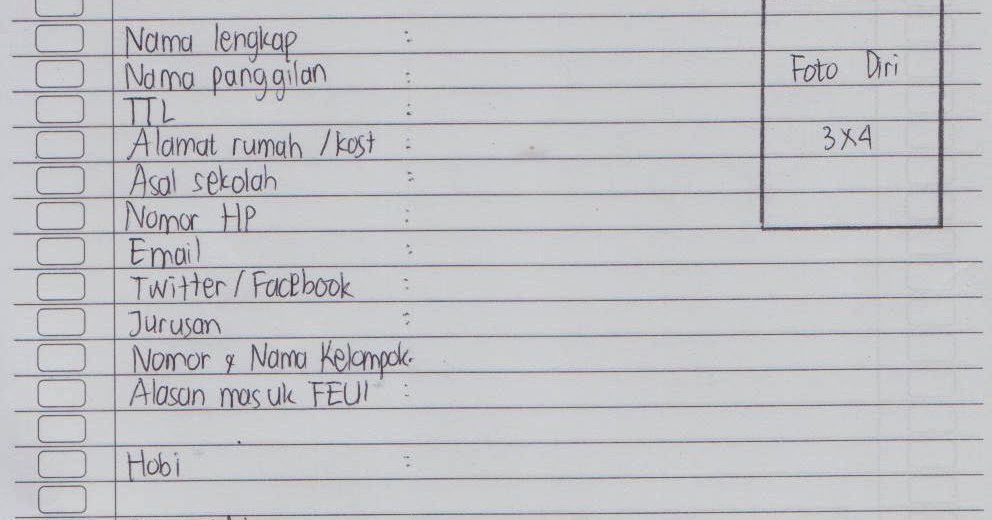 Nama lengkap :
Nama panggilan :
Foto Diri
TTL :
Alamat rumah / kost :
3x4
Asal sekolah :
Nomor HP :
Email :
Twitter / Facebook :
Jurusan :
Nomor & Nama Kelompok:
Alasan masuk FEUI :
Hobi :